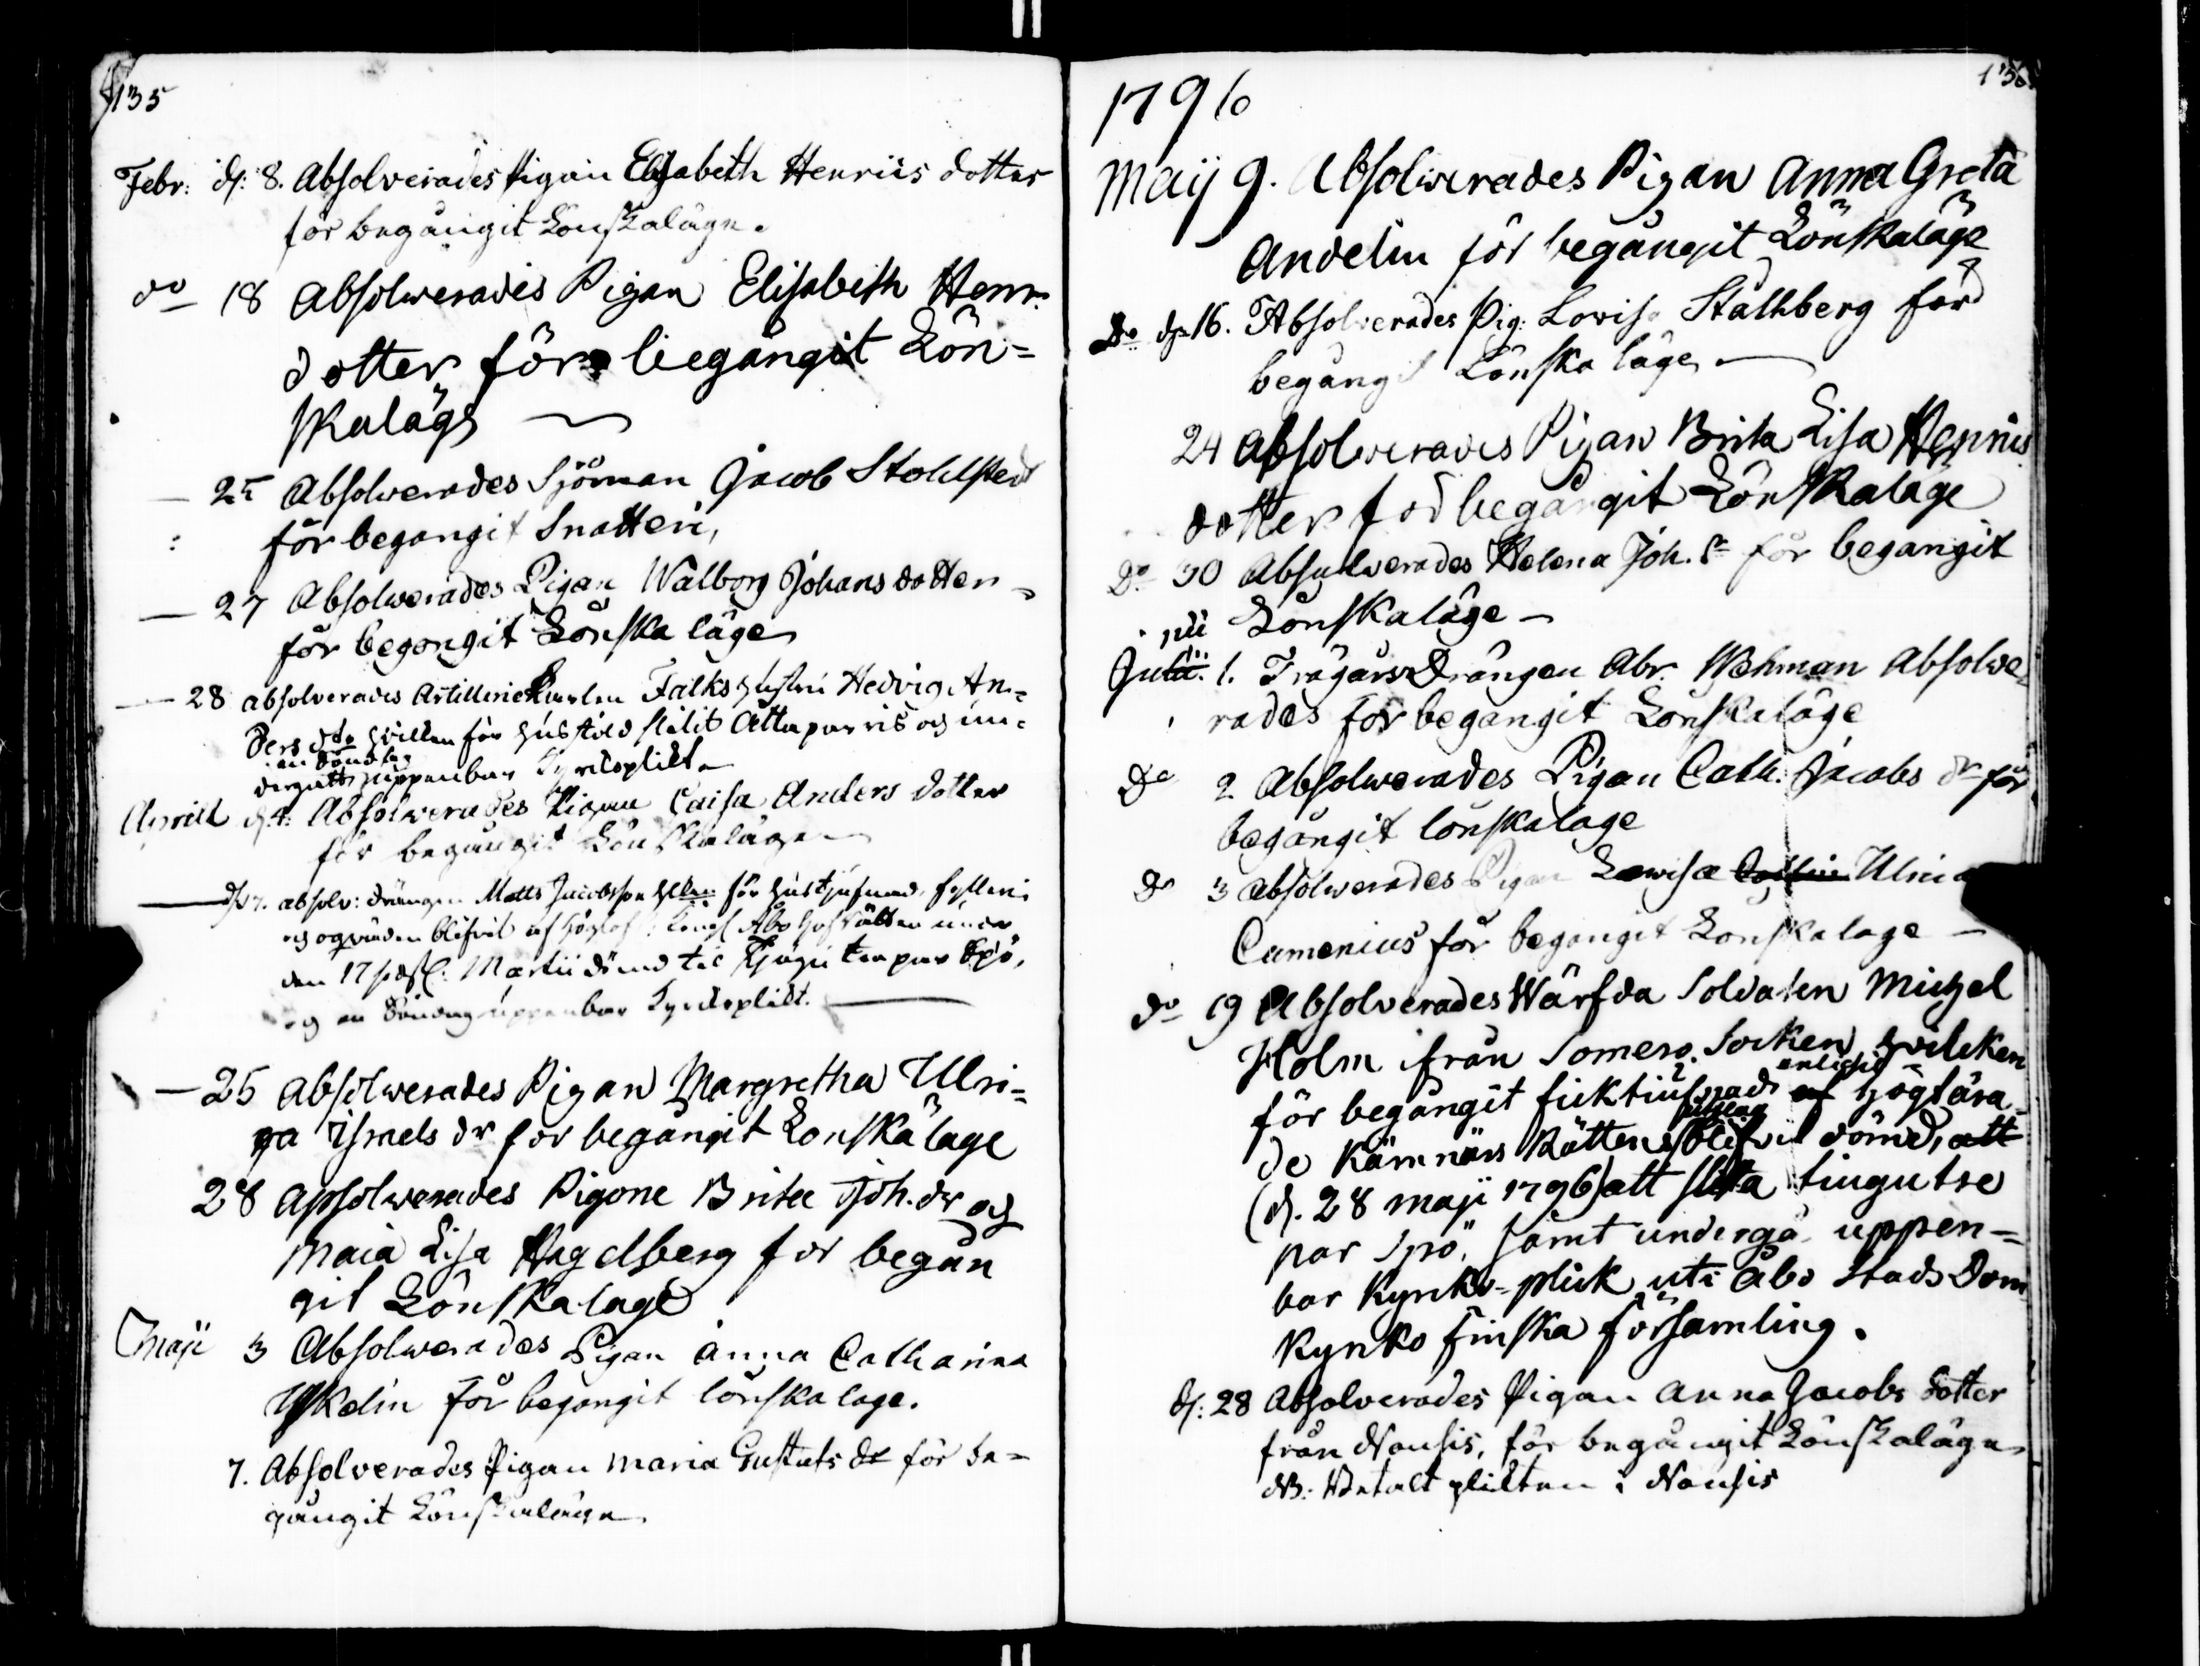 135
Febr: d. 8. Absolverades Pigan Elisabeth Henriis dotter
för begångit Lönskaläge.
do 18 absolwerades Pigan Elisabeth Henr:
dotter för begångit Lön=
skaläge
— 25 Absolverades Sjöman Jacob Stohlstedt
för begangit Snatteri,
— 27 Absolwerades Pigan Walborg Johans dotter
för begongit Lönska läge
— 28 absolverades Artillerie Karlen Falks hustru Hedvig An=
ders dtr hvilken för hus stöld slitit Åtta par ris och un=
en söndag
dergått uppenbar Kyrckoplickt
Aprill d. 4. Absolverades Pigan Caisa Anders dotter
för begångit Lönskaläge
d. 7. absolv: drängen Matts Jacobsson hvilken för hustjufnad, fylleri
och oqväden blifvit af Kongl Åbo HofRätten under
den 17 Martii dömd til tjugu tre par Spö,
och en Söndag uppenbar Kyrckoplickt.
— 25 absolwerades Pigan Margretha Ulri=
ca Ismels dr for begångit Lonskaläge
28 apsolwerades Pigone Brita Joh. dr och
Maia Lisa Hagelberg for begån
git Lönskaläge
Maji 3 Absolwerades Pigan Anna Catharina
Uskelin för begangit lönskalage.
7. Absolverades Pigan Maria Gustafs dr för be=
gångit Lönskaläge
1796
136
Maij 9. Absolwerades Pigan Anna Greta
Andelin för begångit Lönskaläge
Do d. 16. Absolverades Pig: Lovisa Stålhberg för
begångit Lönska läge
24 absolwerades Pigan Brita Lisa Henris
dotter för begångit Lönskaläge
Do 30 Absolwerades Helena Joh. dr för begangit
Lönskaläge —
Junii 1. Trägårs Drängen Abr. Wehman Absolwe=
rades för begangit Lönskaläge
Do 2 Absolwerades Pigan Cath: Jacobs dr för
begångit lönskalage
Do 3 absolwerades Pigan Lowisa Ulrica
Cumenius för begangit Lonskalage —
do 19 Absolverades Wärfda Soldaten Michel
Holm ifrån Somero Socken, hvilcken
enligit
för begångit ficktiufnad af Höglära
utslag
de Kämnärs Rättens blifvit dömd, att
(d. 28 maji 1796) att slita tiugu tre
par Spö, samt undergå uppen=
bar Kyrko=plick uti Åbo Stads Dom
Kyrko Finska församling.
d: 28 Absolverades Pigan Anna Jacobs dotter
från Nousis, för begångit Lönskaläge
NB: Betalt plickten i Nousis